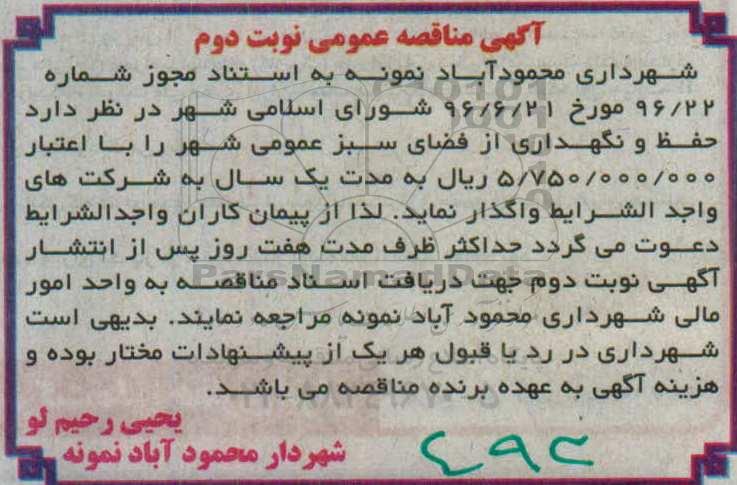 آگهی مناقصه عمومی نوبت دوم
شهرداری محمودآباد نمونه به استناد مجوز شماره
۹۶/۲۲ مورخ ۹۶/۶/۲۱ شورای اسلامی شهر در نظر دارد
حفظ و نگهداری از فضای سبز عمومی شهر را با اعتبار
۵/۷۵۰/۰۰۰/۰۰۰ ریال به مدت یک سال به شرکت های
واجد الشرایط واگذار نماید. لذا از پیمان کاران واجدالشرایط
دعوت می گردد حداکثر ظرف مدت هفت روز پس از انتشار
آگهی نوبت دوم جهت دریافت اسناد مناقصه به واحد امور
ParsNamadData
مالی شهرداری محمود آباد نمونه مراجعه نمایند. بدیهی است
شهرداری در رد یا قبول هر یک از پیشنهادات مختار بوده و
هزینه آگهی به عهده برنده مناقصه می باشد.
یحیی رحیم لو
شهردار محمود آباد نمونه